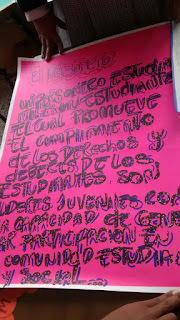 El Mesonero
un mesonero Estudian
es un Estudiante
El cual promueve
El cumplimiento
de los Derechos y
deberes de los
Estudiantes son
Lideres juveniles con
capacidad de gene
rar participacion en
comunidad estudia
y social